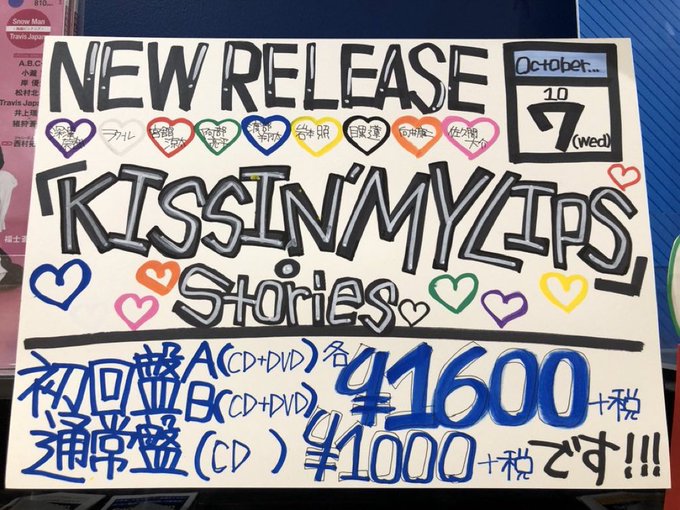 Snow Man
Travis Japan
A.B.C-
小瀧
岸 優
松村北
Travis Japa
井上瑞
猪狩蒼
西村拓
福士蒼
NEW RELEASE
October...
10
7 (wed)
深澤辰哉 ラウール 宮舘涼太 阿部亮平 渡部翔太 岩本照 目黒蓮 向井康二 佐久間大介
「KISSIN' MY LIPS
Stories」
初回盤 A (CD+DVD) 各 ¥1600+税
B (CD+DVD)
通常盤 (CD) ¥1000+税 です!!!